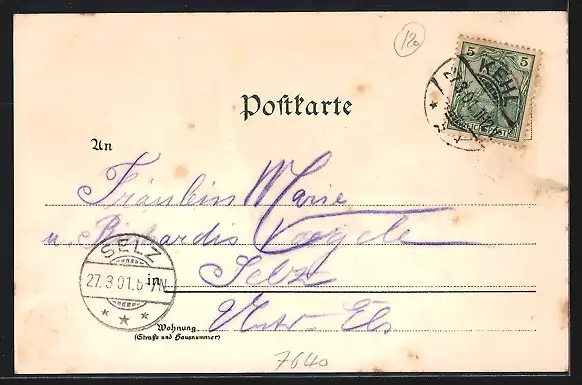 120
5 5
KEHL
Postkarte
An
Fräulein Marie
u. Richardis Voegele
SELZ
27.3.01.6-7N
in Selz
Wohnung
(Straße und Hausnummer)
Unter-Els
7640